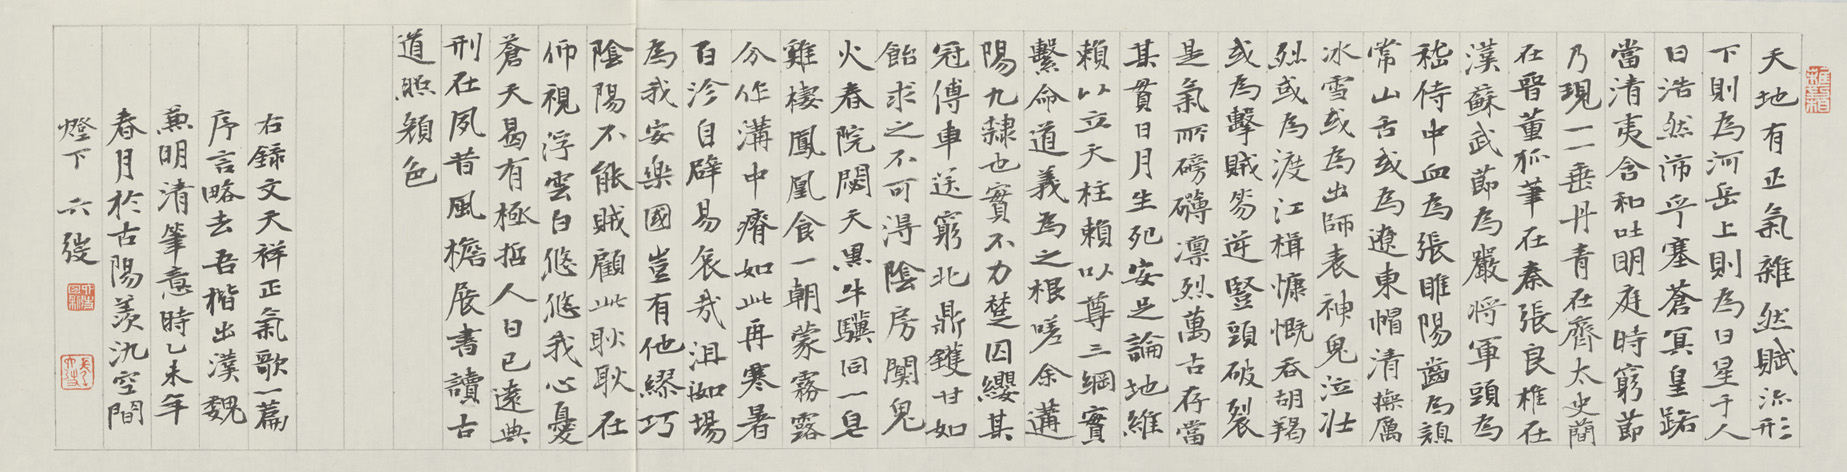 天地有正氣雜然賦流形
下則為河岳上則為日星于人
曰浩然沛乎塞蒼冥皇路
當清夷含和吐明庭時窮節
乃現一一垂丹青在齊太史簡
在晉董狐筆在秦張良椎在
漢蘇武節為嚴將軍頭為
嵇侍中血為張睢陽齒為顏
常山舌或為遼東帽清操厲
冰雪或為出師表神鬼泣壯
烈或為渡江楫慷慨吞胡羯
或為擊賊笏逆豎頭破裂
是氣所磅礴凜烈萬古存當
其貫日月生死安足論地維
賴以立天柱賴以尊三綱實
繫命道義為之根嗟余遘
陽九隸也實不力楚囚纓其
冠傅車送窮北鼎鑊甘如
飴求之不可得陰房闃鬼
火春院閟天黑牛驥同一皂
雞棲鳳凰食一朝蒙霧露
分作溝中瘠如此再寒暑
百沴自辟易哀哉沮洳場
為我安樂國豈有他繆巧
陰陽不能賊顧此耿耿在
仰視浮雲白悠悠我心憂
蒼天曷有極哲人日已遠典
刑在夙昔風檐展書讀古
道照顏色
右錄文天祥正氣歌一篇
序言略去吾楷出漢魏
兼明清筆意時乙未年
春月於古陽羨氿空間
燈下 六